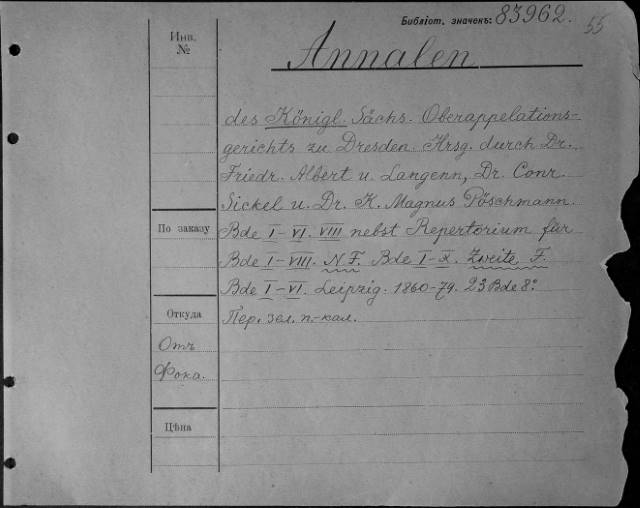 Библіот. значекъ: 83962.
55
Инв.
№
Annalen
des Königl. Sächs. Oberappelations-
gerichts zu Dresden. Hrsg. durch Dr.
Friedr. Albert u. Langenn, Dr. Conr.
Sickel u. Dr. K. Magnus Pöschmann.
По заказу
Bde I-VI. VIII nebst Repertorium für
Bde I-VIII. N. F. Bde I-X. Zweite F.
Bde I-VI. Leipzig. 1860-74. 23 Bde 8º
Откуда
Пер. зел. п.-кал.
Отъ
Фока.
Цѣна